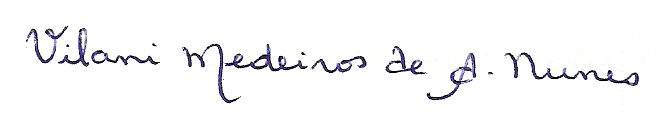 Vilani Medeiros de A. Nunes